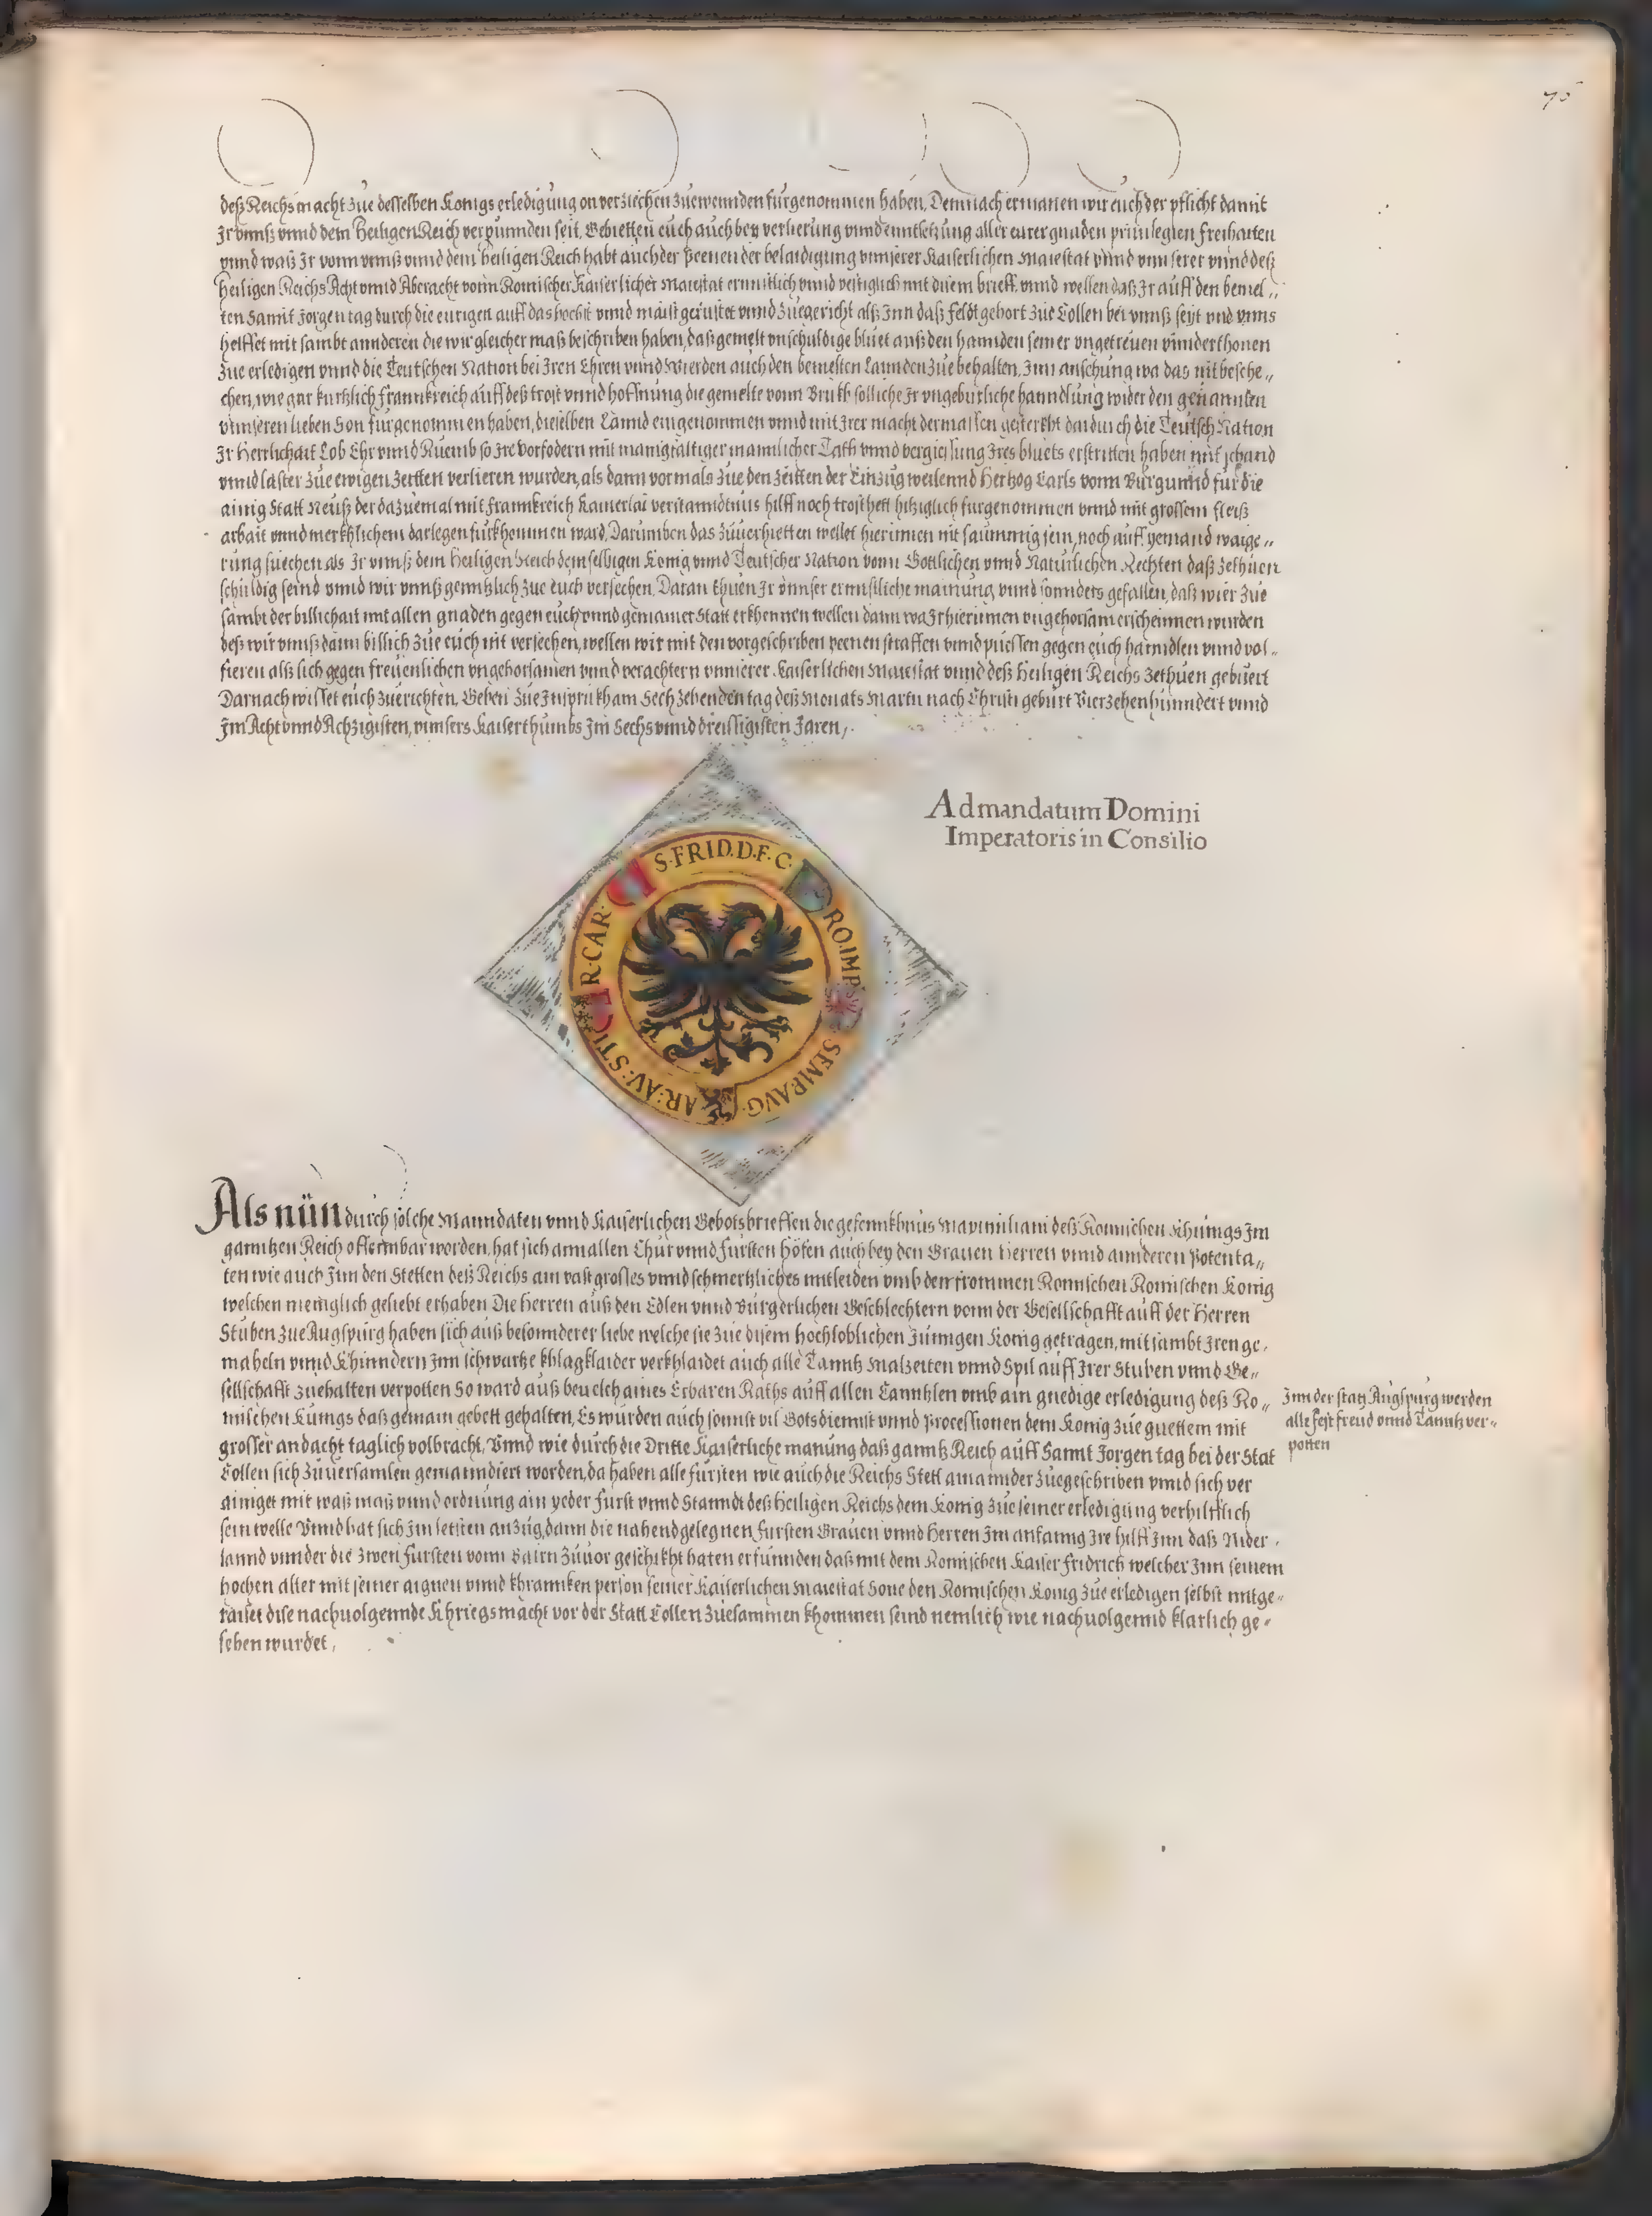 75
deß Reichs macht zue desselben Konigs erledigung on verziechen zuewennden fürgenommen haben, Demnach ermanen wir euch der pflicht damit
Ir vnnß vnnd dem Heiligen Reich verpunnden seit, Gebietten euch auch bey verlierung vnnd enntsetzung aller eurer gnaden priuilegien freihaiten
vnnd waß Ir vonn vnnß vnnd dem heiligen Reich habt auch der peenen der belaidigung vnnserer Kaiserlichen Maiestat vnnd vnnserer vnnd deß
Heiligen Reichs Acht vnnd Aberacht vonn Romischer Kaiserlicher Maiestat ernnstlich vnnd vestiglich mit disem brieff. vnnd wellen daß Ir auff den bemel„
ten Sannt Jorgen tag durch die eurigen auff das hochst vnnd maist gerustet vnnd zuegericht alß Inn daß feldt gehort zue Collen bei vnnß seyt vnd vnns
helffet mit sambt annderen die wir gleicher maß beschriben haben, daß gemelt vnschuldige bluet auß den hannden seiner vngetreuen vnnderthonen
zue erledigen vnnd die Teutschen Nation bei Iren Ehren vnnd Wierden auch den bemelten Lannden zue behalten, Inn ansehung wa das nit besche„
chen, wie gar kurtzlich Frannkreich auff deß trost vnnd hoffnung die gemelte vonn Brukh solliche Ir vngeburliche hanndlung wider den genannten
vnnseren lieben Son fürgenommen haben, dieselben Lannd eingenommen vnnd mit Irer macht dermassen gesterkht dardurch die Teutsch Nation
Ir Herrlichait Lob Ehr vnnd Ruemb so Ire vorfodern mit manigfaltiger mannlicher Tath vnnd vergiessung Ires bluets erstritten haben mit schand
vnnd laster zue ewigen Zeitten verlieren wurden, als dann vormals zue den Zeitten der Einzug weilennd Hertzog Carls vonn Burgunnd für die
ainig Statt Neuß der dazuemal mit Frannkreich kainerlai verstanndtnus hilff noch trost hett hitziglich fürgenommen vnnd mit grossem fleiß
arbait vnnd merkhlichem darlegen fürkhommen ward, Darumben das zuuerhietten wellet hierinnen nit saummig sein, noch auff yemand waige„
rung suechen als Ir vnnß dem Heiligen Reich demselbigen Konig vnnd Teutscher Nation vonn Gottlichen vnnd Naturlichen Rechten daß zethuen
schuldig seind vnnd wir vnnß genntzlich zue euch versechen. Daran thuen Ir vnnser ernnstliche mainung vnnd sonnders gefallen, daß wier zue
sambt der billichait mit allen gnaden gegen euch vnnd gemainer Statt erkhennen wellen dann wa Ir hierinnen vngehorsam erscheinnen wurden
deß wir vnnß dann billich zue euch nit versechen, wellen wir mit den vorgeschriben peenen straffen vnnd puessen gegen euch hanndlen vnnd vol„
fieren alß sich gegen freuenlichen vngehorsamen vnnd verachtern vnnserer Kaiserlichen Maiestat vnnd deß Heiligen Reichs zethuen gebuert
Darnach wisset euch zuerichten, Geben zue Insprukh am Sechzehenden tag deß Monats Martii nach Christi geburt Vierzehenhunndert vnnd
Im Acht vnnd Achzigisten, vnnsers Kaiserthumbs Im Sechs vnnd dreissigisten Jaren,
Ad mandatum Domini
Imperatoris in Consilio
S·FRID.D.F.C·
RO.IMP
SEMP.AVG
AR:AV:STI
R·CAR·
Als nün durch solche Manndaten vnnd Kaiserlichen Gebotsbrieffen die gefennkhnus Maximiliani deß Romischen Khunigs Im
ganntzen Reich offennbar worden, hat sich an allen Chur vnnd fursten höfen auch bey den Grauen Herren vnnd annderen Potenta„
ten wie auch Inn den Stetten deß Reichs am vast grosses vnnd schmertzliches mitleiden vmb den frommen Romischen Romischen Konig
welchen meniglich geliebt erhaben Die Herren auß den Edlen vnnd Burgerlichen Geschlechtern vonn der Gesellschafft auff der Herren
Stuben zue Augspurg haben sich auß besonnderer liebe welche sie zue disem hochloblichen Junngen Konig getragen, mit sambt Iren ge„
maheln vnnd Khinndern Inn schwartze khlagklaider verkhlaidet auch alle Tanntz Malzeiten vnnd Spil auff Irer Stuben vnnd Ge„
sellschafft zuehalten verpotten So ward auß beuelch aines Erbaren Raths auff allen Canntzlen vmb ain gnedige erledigung deß Ro„
mischen Kunigs daß gemain gebett gehalten, Es wurden auch sonnst vil Gotsdiennst vnnd Processionen dem Konig zue guettem mit
grosser andacht taglich volbracht, Vnnd wie durch die Dritte Kaiserliche manung daß ganntz Reich auff Sannt Jorgen tag bei der Stat
Collen sich zuuersamlen gemanndiert worden, da haben alle fursten wie auch die Reichs Stett ainannder zuegeschriben vnnd sich ver
ainiget mit waß maß vnnd ordnung ain yeder furst vnnd Stanndt deß Heiligen Reichs dem Konig zue seiner erledigung verhilfflich
sein welle Vnnd hat sich Im letsten anzug, dann die nahend gelegnen fursten Grauen vnnd Herren Im anfanng Ire hilff Inn daß Nider„
lannd vnnder die zwen fursten vonn Bairn zuuor geschikht haten erfunnden daß mit dem Romischen Kaiser Fridrich welcher Inn seinem
hochen alter mit seiner aignen vnnd khrannken person seiner Kaiserlichen Maiestat Sone den Romischen Konig zue erledigen selbst mitge„
raiset dise nachuolgennde Khriegsmacht vor der Statt Collen zuesammen khommen seind nemlich wie nachuolgennd klarlich ge„
sehen wurdet,
Inn der statt Augspurg werden
alle fest freud vnnd Tanntz ver„
potten